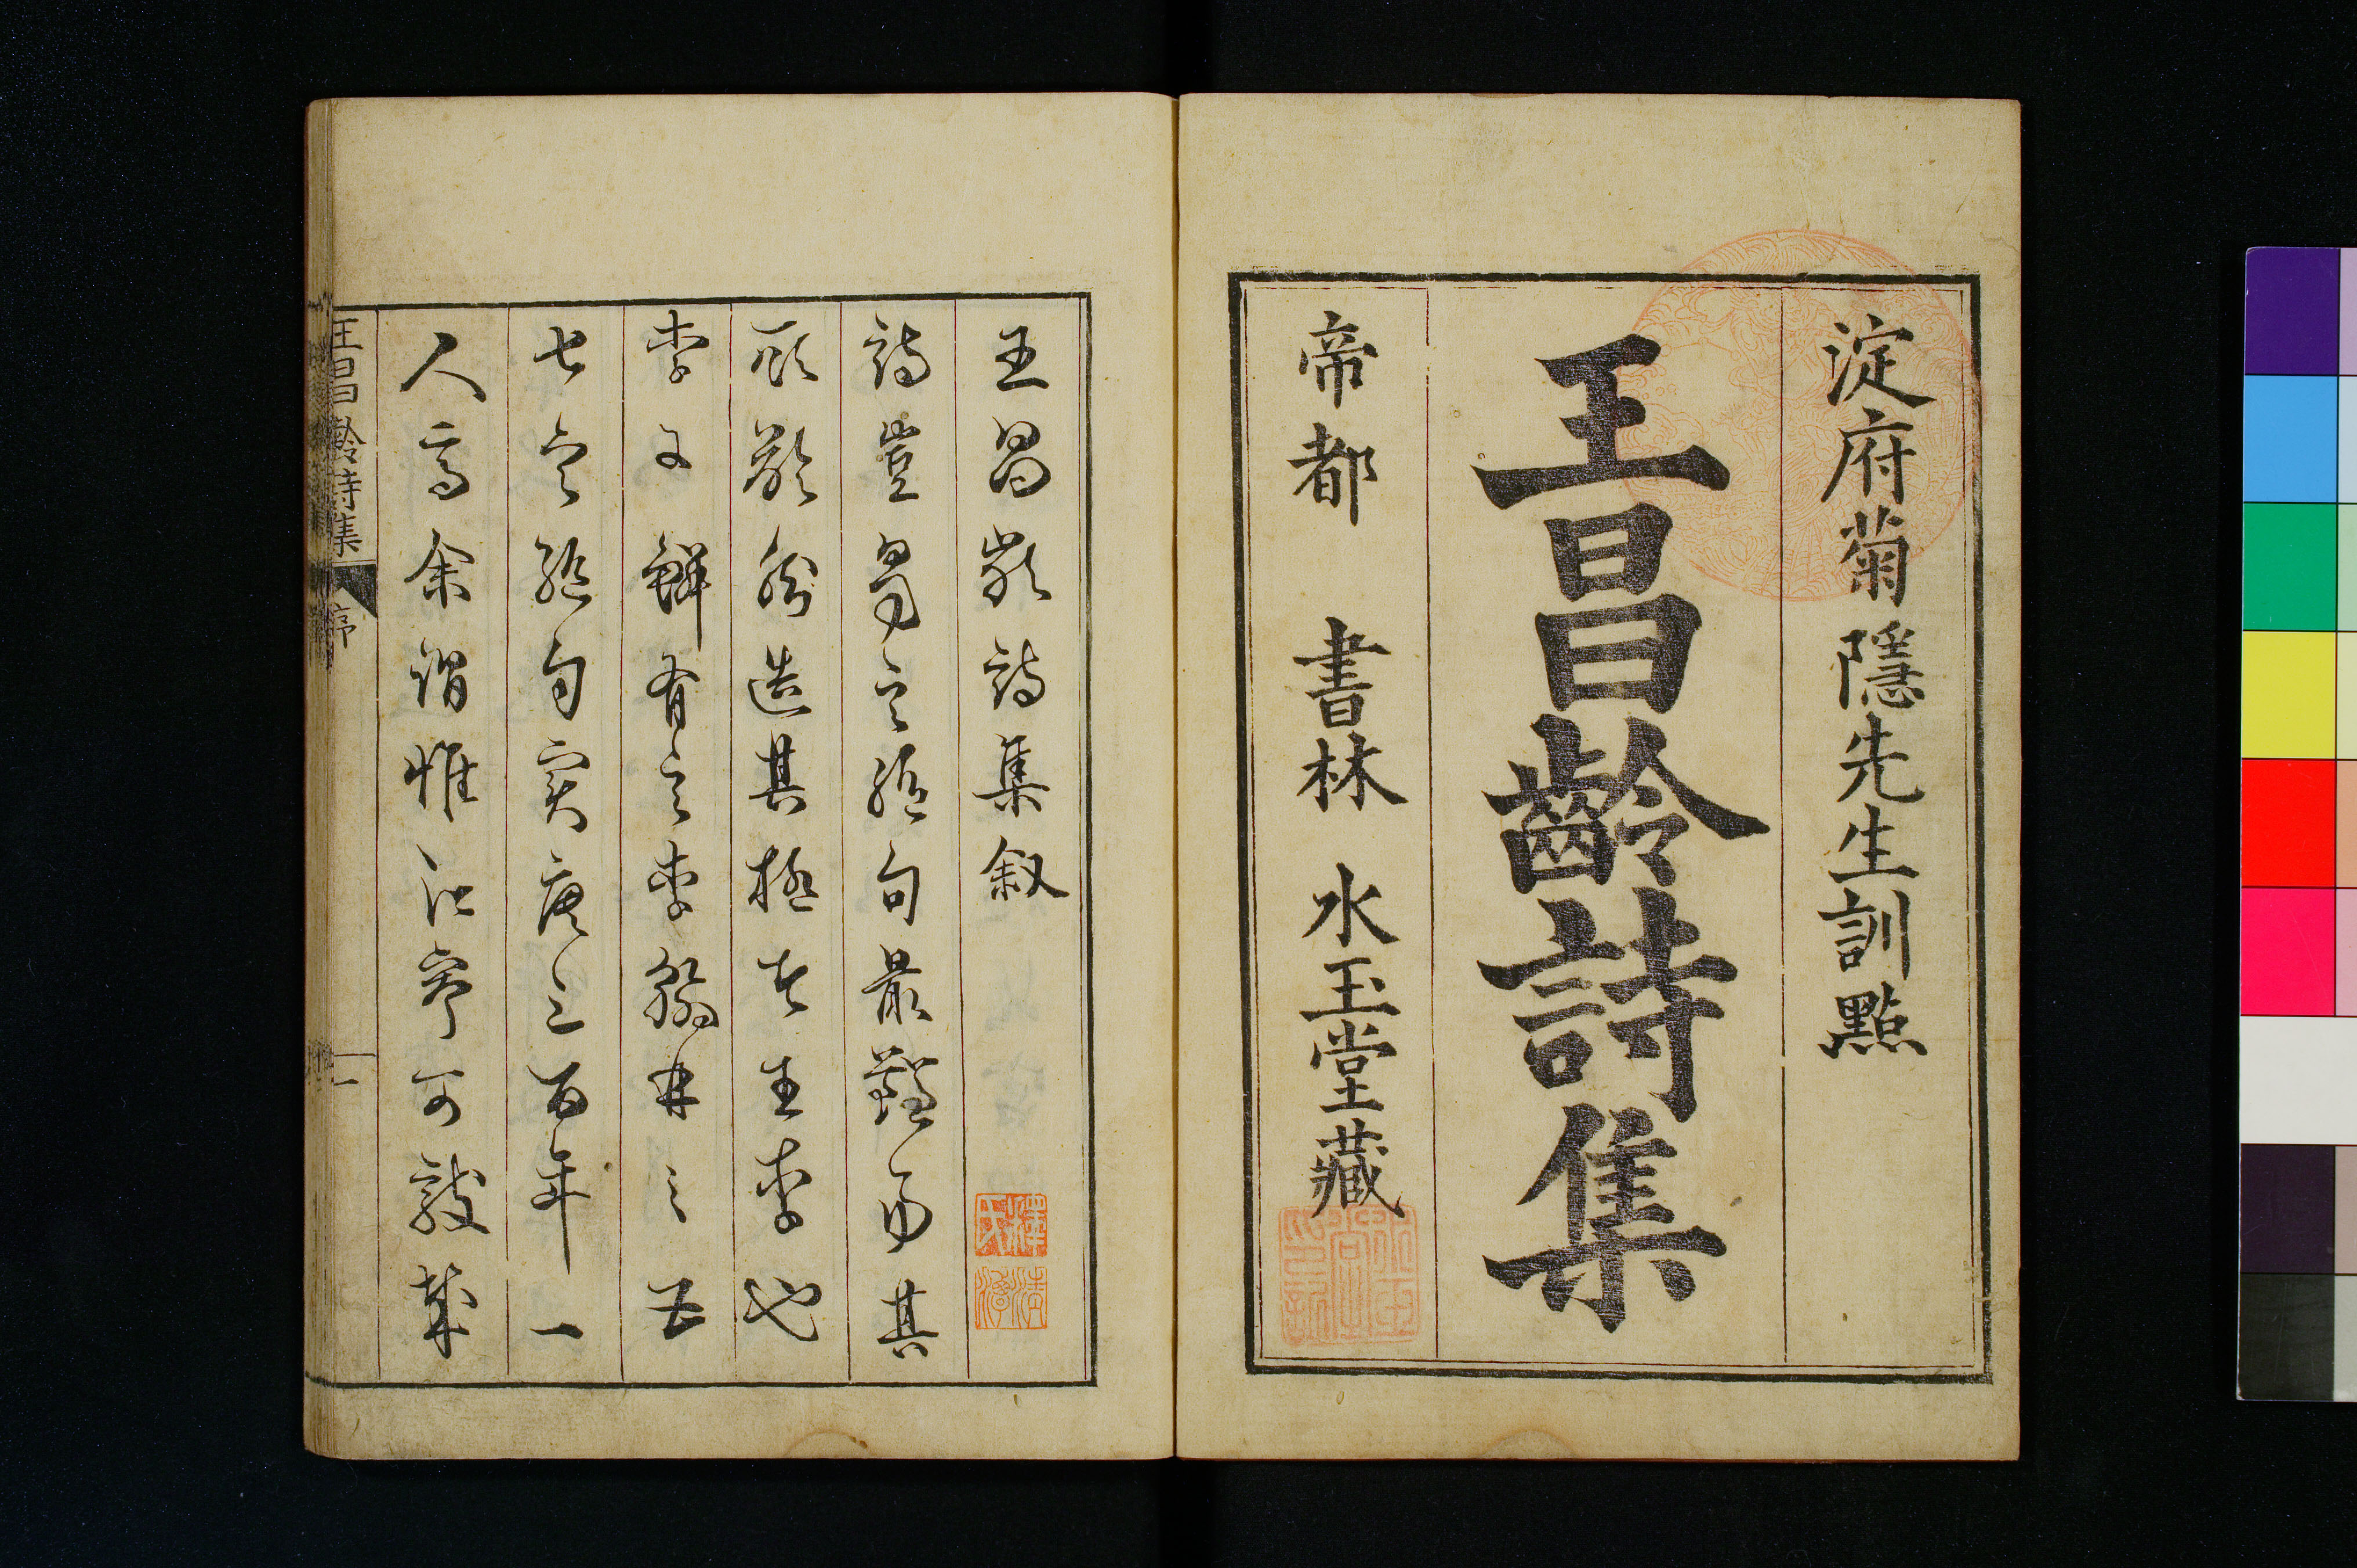 淀府菊隱先生訓點
王昌齡詩集
帝都 書林 水玉堂藏
王昌齡詩集叙
詩豈易言絶句最難而其
能造其極者王李也
李于鱗有言李翰林之五
七言絶句實唐三百年一
人焉余謂惟江寧可敵
王昌齡詩集 序 一